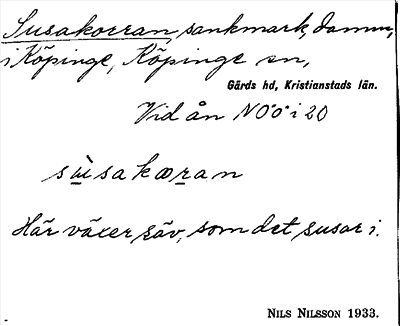 Susakorran, sankmark, damm,
i Köpinge, Köpinge sn,
Gärds hd, Kristianstads län.
Vid ån NÖ·Ö· i 20
sùsakœran
Här växer säv, som det susar i.
NILS NILSSON 1933.